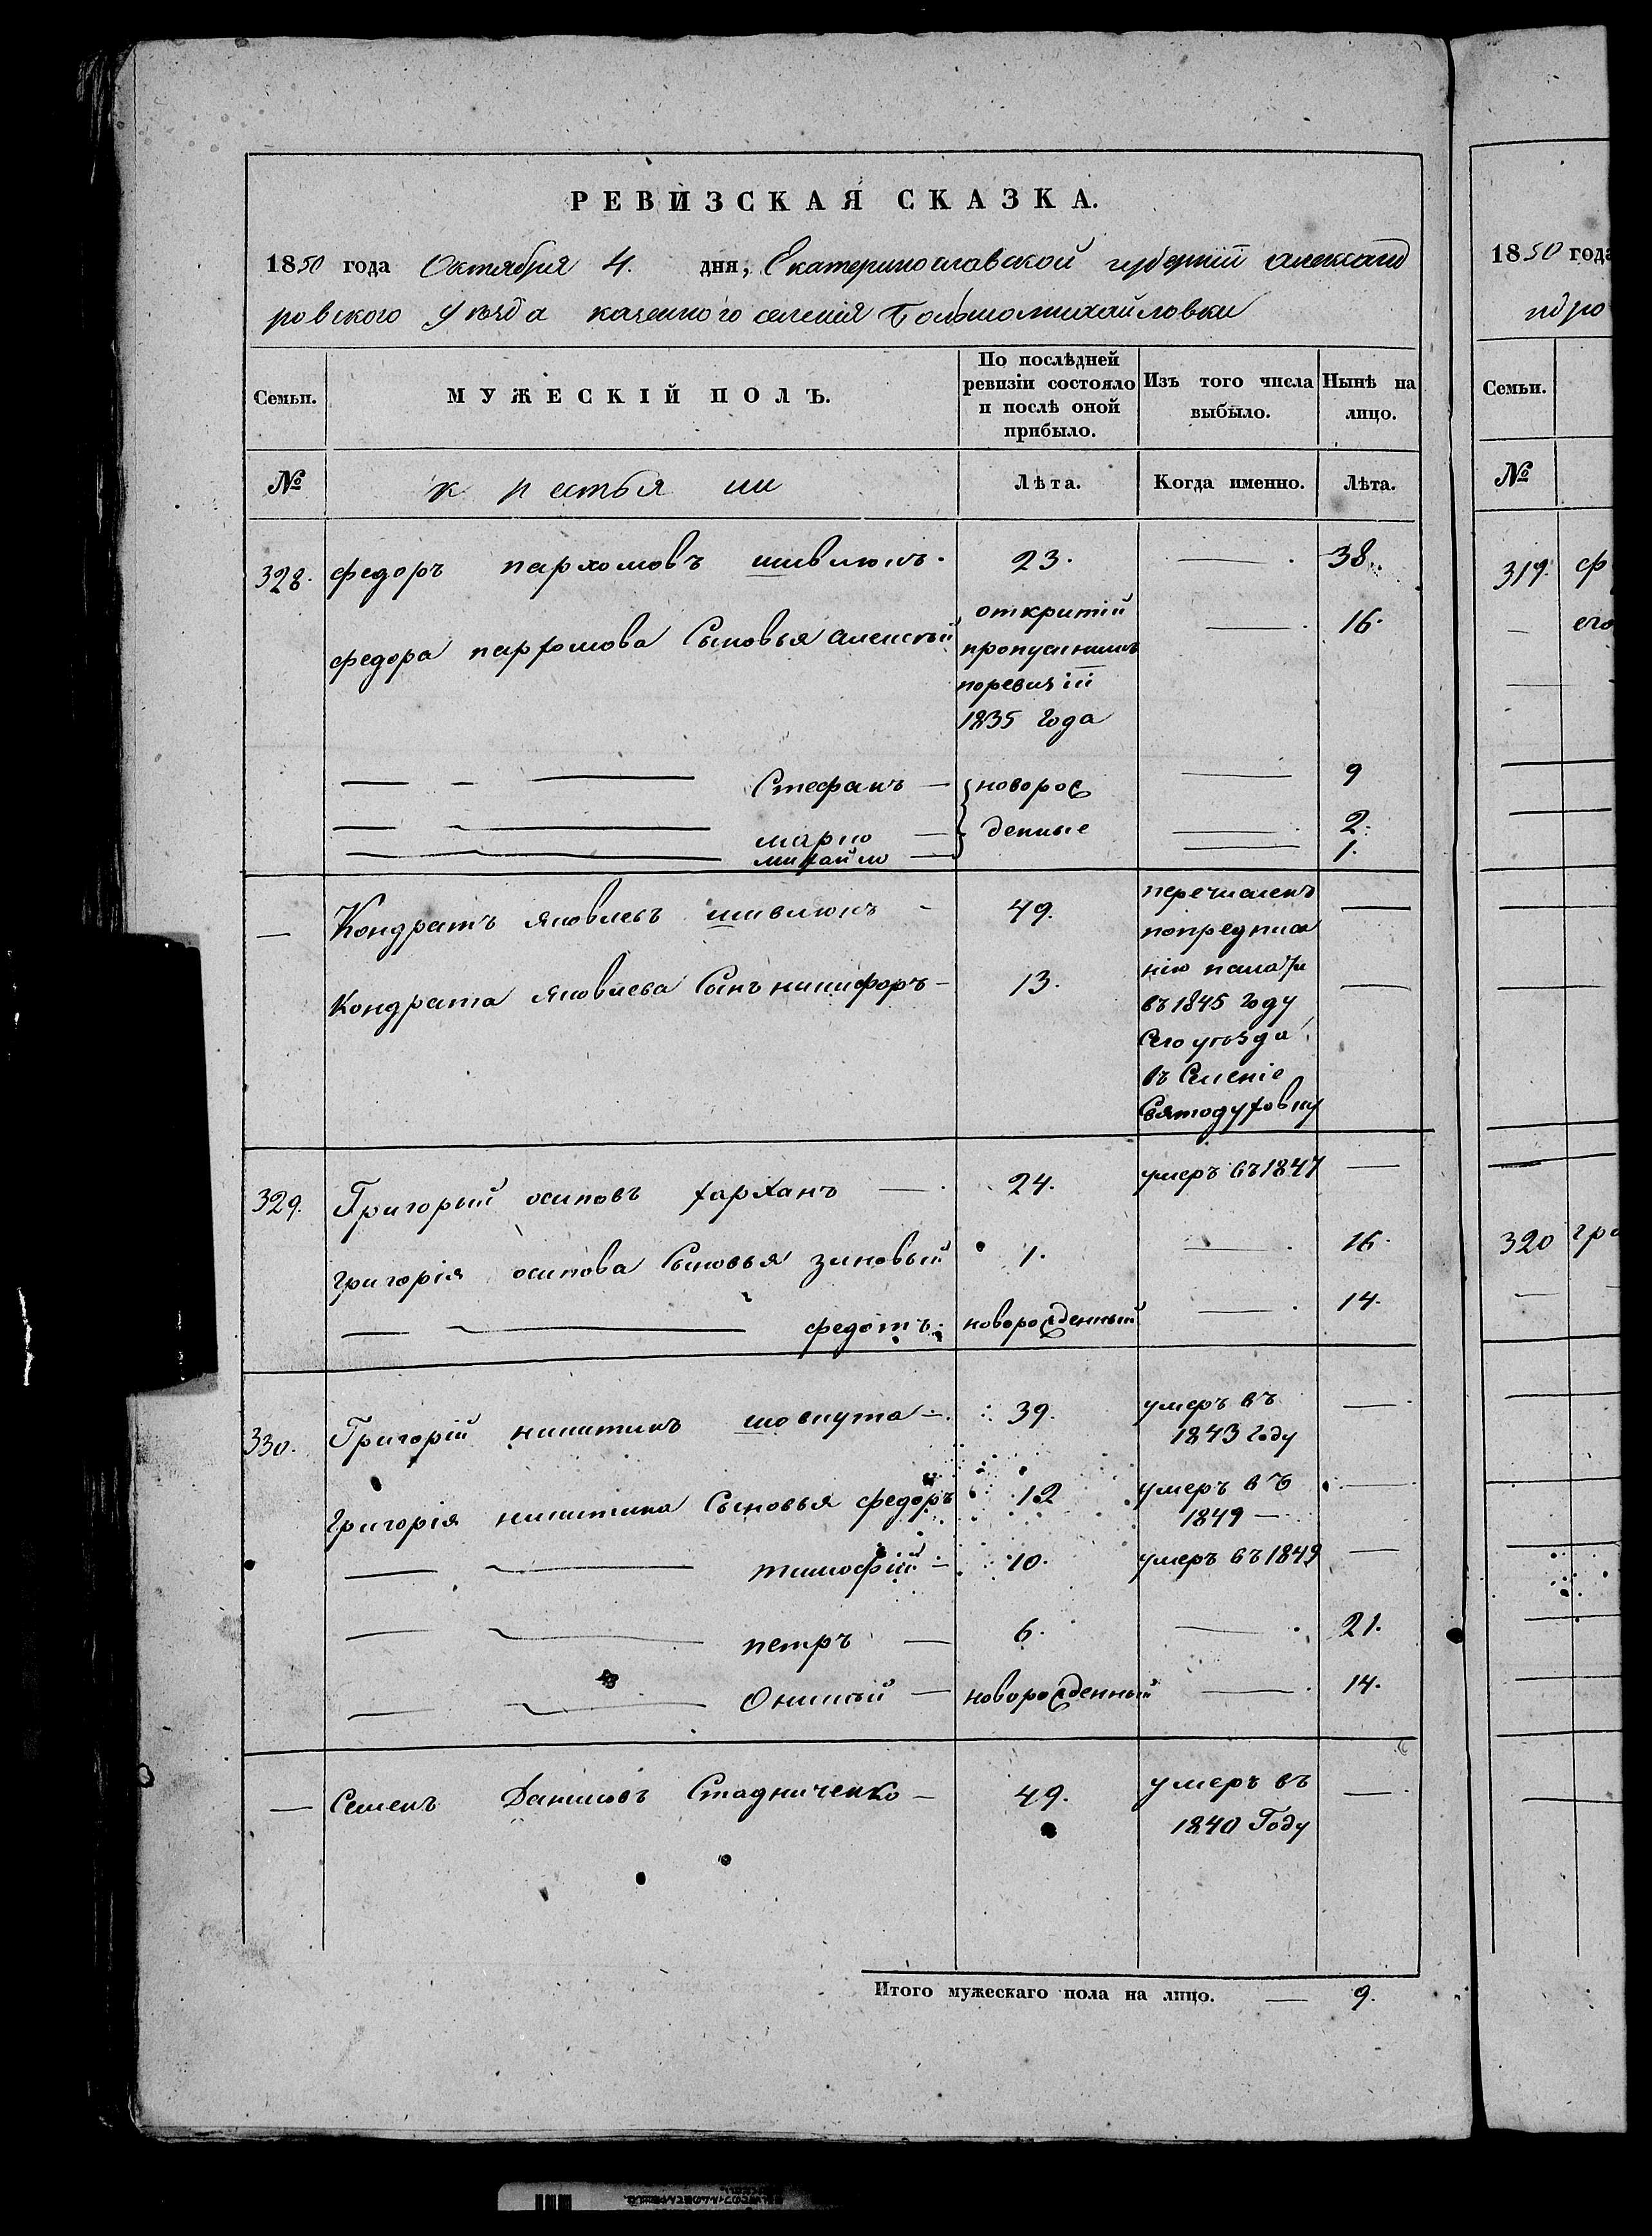 РЕВИЗСКАЯ СКАЗКА.
1850 года Октября 4. дня, Екатеринославской губерніи александ
ровского Уезда казенного селенія Большомихайловки
Семьи. МУЖЕСКІЙ ПОЛЪ. По послѣдней ревизіи состояло и послѣ оной прибыло. Изъ того числа выбыло. Нынѣ на лицо.
№ крестьяни Лѣта. Когда именно. Лѣта.
328. федоръ пархомовъ 23. — 38.
федора пархомова Сыновья алексѣй открытій — 16.
пропущеннимъ
поревизіи
1835 года
Стефанъ — новорож — 9
марко — денные — 2.
михайло — 1.
— Кондратъ яковлевъ — 49. перечисленъ —
попредписа
Кондрата яковлева Сынъ никифоръ — 13. нію палаты —
въ 1845 году
Сего уѣзда
въ Селеніе
Святодуховку
329. Григорый осиповъ тарханъ — 24. умеръ въ 1847 —
григорія осипова Сыновья зиновый 1. — 16.
федотъ. новорожденный — 14.
330. Григорій никитинъ шовкута — 39. умеръ въ —
1843 году
григорія никитина Сыновья федоръ 12 умеръ въ —
1849 —
тимофій — 10. умеръ въ 1849 —
петръ — 6. — 21.
Онисъй — новорожденный — 14.
— Семенъ Даниловъ Стадниченко — 49. умеръ въ —
1840 Году
Итого мужескаго пола на лицо. — 9.
1850 года
ндро
Семьи.
№
319. ф
его
320 гри